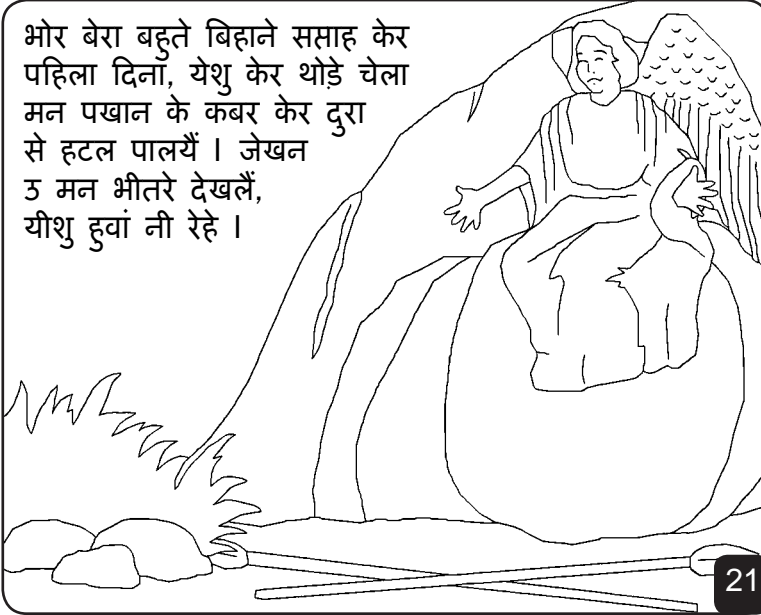 भोर बेरा बहुते बिहाने सप्ताह केर
पहिला दिना, येशु केर थोड़े चेला
मन पखान के कबर केर दुरा
से हटल पालयैं ।  जेखन
उ मन भीतरे देखलैं,
यीशु हुवां नी रेहे ।
21